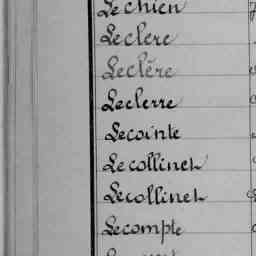 Le chien
Leclerc
Leclère
Leclerre
Lecointe
Lecollinet
Lecollinet
Lecompte